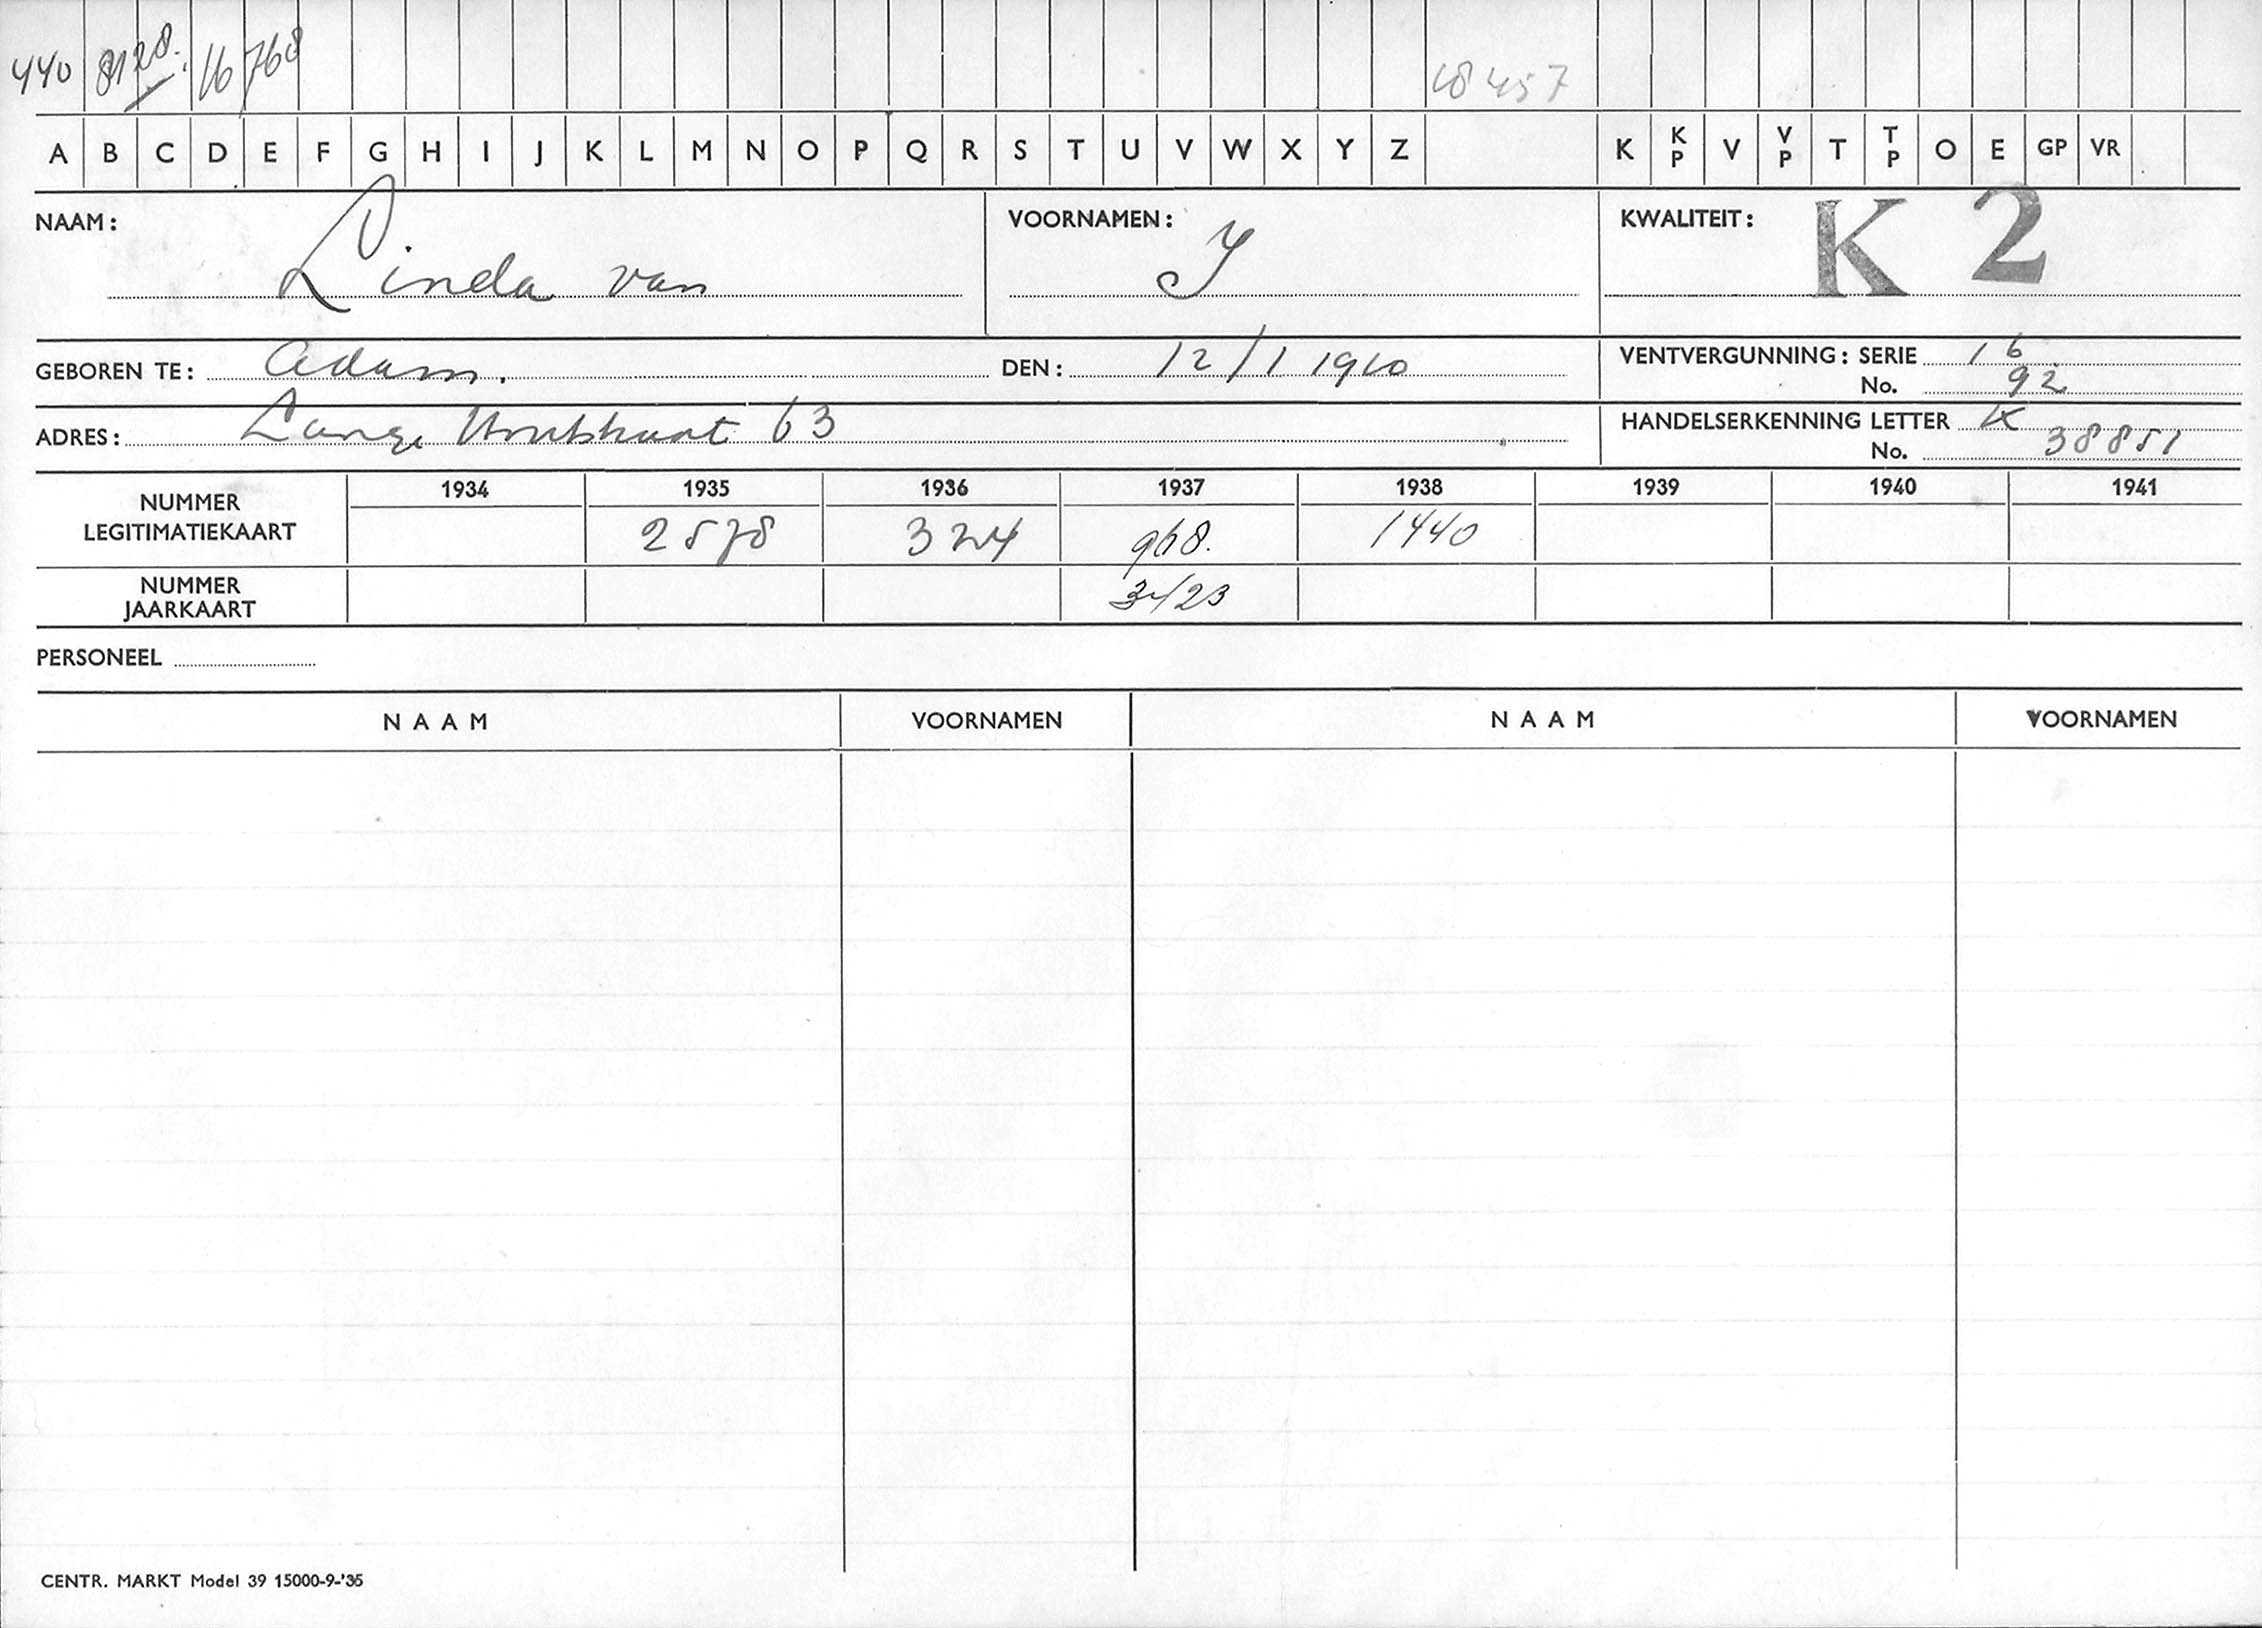 440 8128. 16768 18457
A B C D E F G H I J K L M N O P Q R S T U V W X Y Z K KP V VP T TP O E GP VR
NAAM: Linda van VOORNAMEN: J KWALITEIT: K 2
GEBOREN TE: Adam. DEN: 12/1 1910 VENTVERGUNNING: SERIE 16
No. 92
ADRES: Lange Houtstraat 63 HANDELSERKENNING LETTER K
No. 38851
1934 1935 1936 1937 1938 1939 1940 1941
NUMMER
LEGITIMATIEKAART 2578 324 968. 1440
NUMMER
JAARKAART
PERSONEEL
NAAM VOORNAMEN NAAM VOORNAMEN
CENTR. MARKT Model 39 15000-9-'35